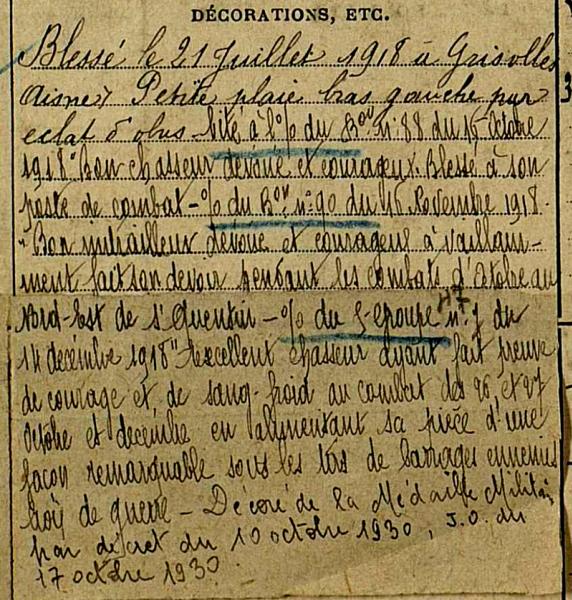 DÉCORATIONS, ETC.
Blessé le 21 Juillet 1918 à Grisolles
(Aisne) Petite plaie bras gauche par
eclat d'obus - Cité à l'o/o du Bon n: 88 du 16 Octobre
1918 "Bon chasseur dévoué et courageux. Blessé à son
poste de combat - o/o du Bon n: 90 du 16 Novembre 1918.
"Bon mitrailleur dévoué et courageux à vaillam-
ment fait son devoir pendant les combats d'Octobre au
Nord-Est de St Quentin - o/o du Groupe n: 7 du
14 décembre 1918 "Excellent chasseur ayant fait preuve
de courage et de sang-froid au combat des 26 et 27
Octobre et décembre en alimentant sa pièce d'une
façon remarquable sous les tirs de barrages ennemis
Croix de guerre - Décoré de la Médaille Militaire
par décret du 10 octobre 1930, J.O. du
17 octobre 1930